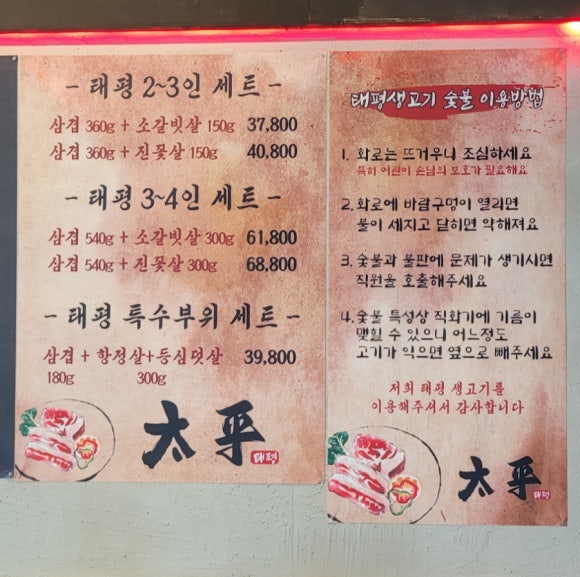 - 태평 2~3인 세트 -
삼겹 360g + 소갈빗살 150g 37,800
삼겹 360g + 진꽃살 150g 40,800
- 태평 3~4인 세트 -
삼겹 540g + 소갈빗살 300g 61,800
삼겹 540g + 진꽃살 300g 68,800
- 태평 특수부위 세트 -
삼겹 + 항정살+등심덧살 39,800
180g 300g
太平
태평
태평생고기 숯불 이용방법
1. 화로는 뜨거우니 조심하세요
특히 어린이 손님의 보호가 필요해요
2. 화로에 바람구멍이 열리면
불이 세지고 닫히면 약해져요
3. 숯불과 불판에 문제가 생기시면
직원을 호출해주세요
4. 숯불 특성상 직화기에 기름이
맺힐 수 있으니 어느정도
고기가 익으면 옆으로 빼주세요
저희 태평 생고기를
이용해주셔서 감사합니다
太平
태평